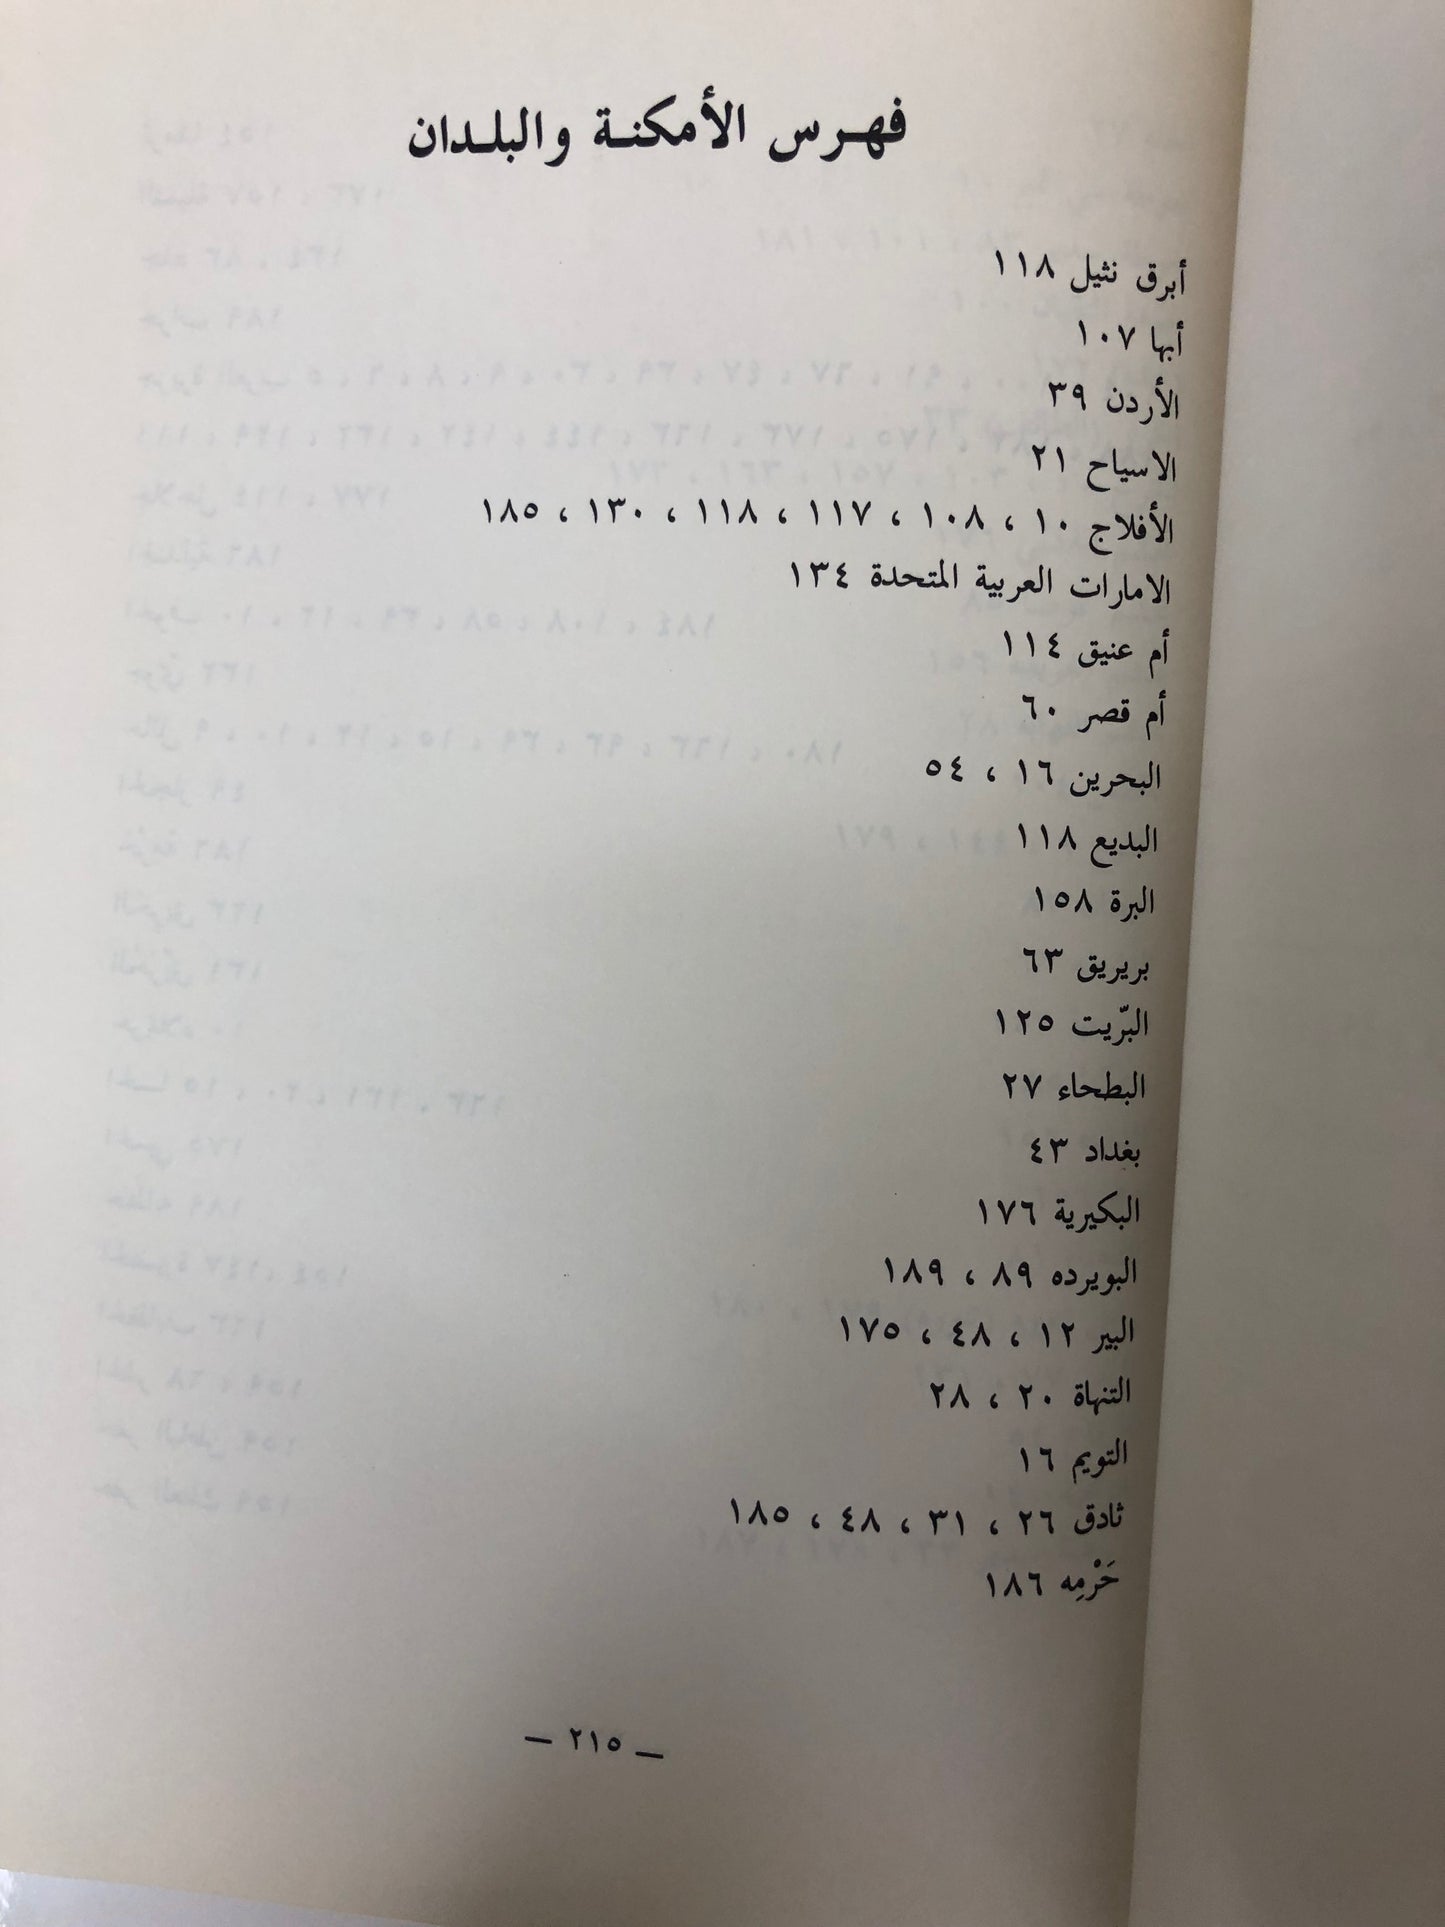 فهرس الأمكنة والبلدان
أبرق نثيل ١١٨
أبها ١٠٧
الأردن ٣٩
الاسياح ٢١
الأفلاج ١٠ ، ١٠٨ ، ١١٧ ، ١١٨ ، ١٣٠ ، ١٨٥
الامارات العربية المتحدة ١٣٤
أم عنيق ١١٤
أم قصر ٦٠
البحرين ١٦ ، ٥٤
البديع ١١٨
البرة ١٥٨
بريريق ٦٣
البرّيت ١٢٥
البطحاء ٢٧
بغداد ٤٣
البكيرية ١٧٦
البويرده ٨٩ ، ١٨٩
البير ١٢ ، ٤٨ ، ١٧٥
التنهاة ٢٠ ، ٢٨
التويم ١٦
ثادق ٢٦ ، ٣١ ، ٤٨ ، ١٨٥
حَرْمِه ١٨٦
— ٢١٥ —